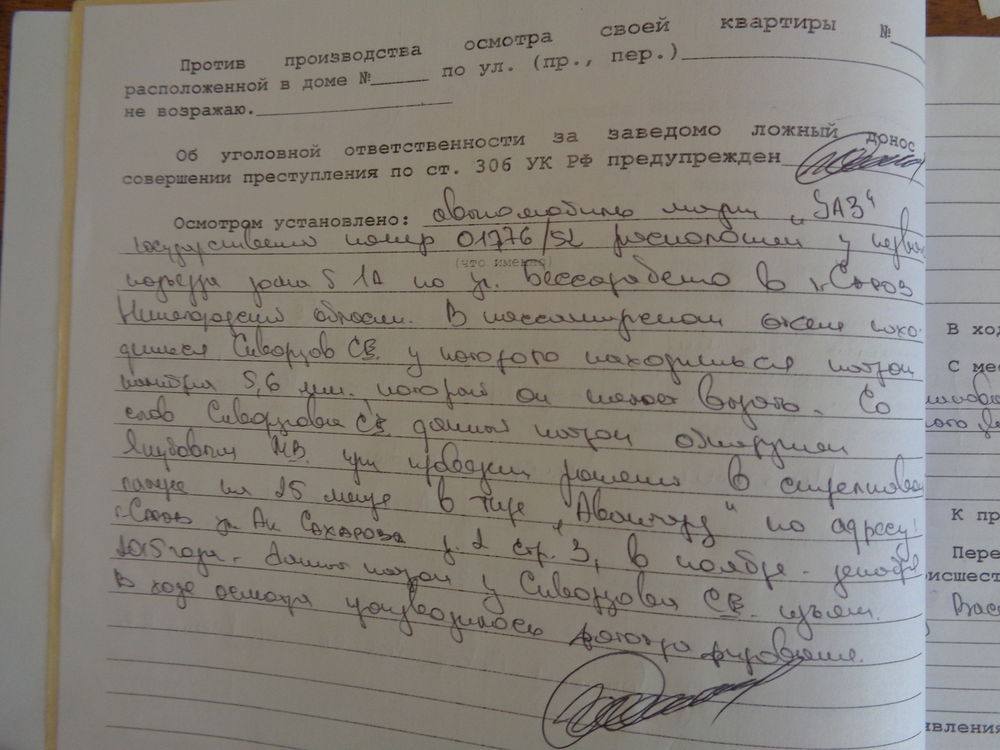 Против производства осмотра своей квартиры №
расположенной в доме № по ул. (пр., пер.)
не возражаю.
Об уголовной ответственности за заведомо ложный донос
совершении преступления по ст. 306 УК РФ предупрежден
Осмотром установлено: автомобиль марки „УАЗ“
государственный номер 01776/52 расположен у первого
(что именно)
подъезда дома 5 1А по ул. Бессарабенко в г. Саров
Нижегородской области. В пассажирском отсеке нахо-
дишься Скворцов СВ. у которого находишься патрон
калибра 5,6 мм. который он желает выдать. Со
слов Скворцова СВ данный патрон обнаружен
Якубовым МВ. при проведении ремонта в стрелковой
галерее на 25 метре в тире „Авангард“ по адресу:
г. Саров ул. Ак Сахарова д. 2 стр. 3, в ноябре - декабре
2015 года. Данный патрон у Скворцова СВ. изъят.
В ходе осмотра производилось фотографирование.
В ход
С мес
К пр
Пере
оисшест
явления